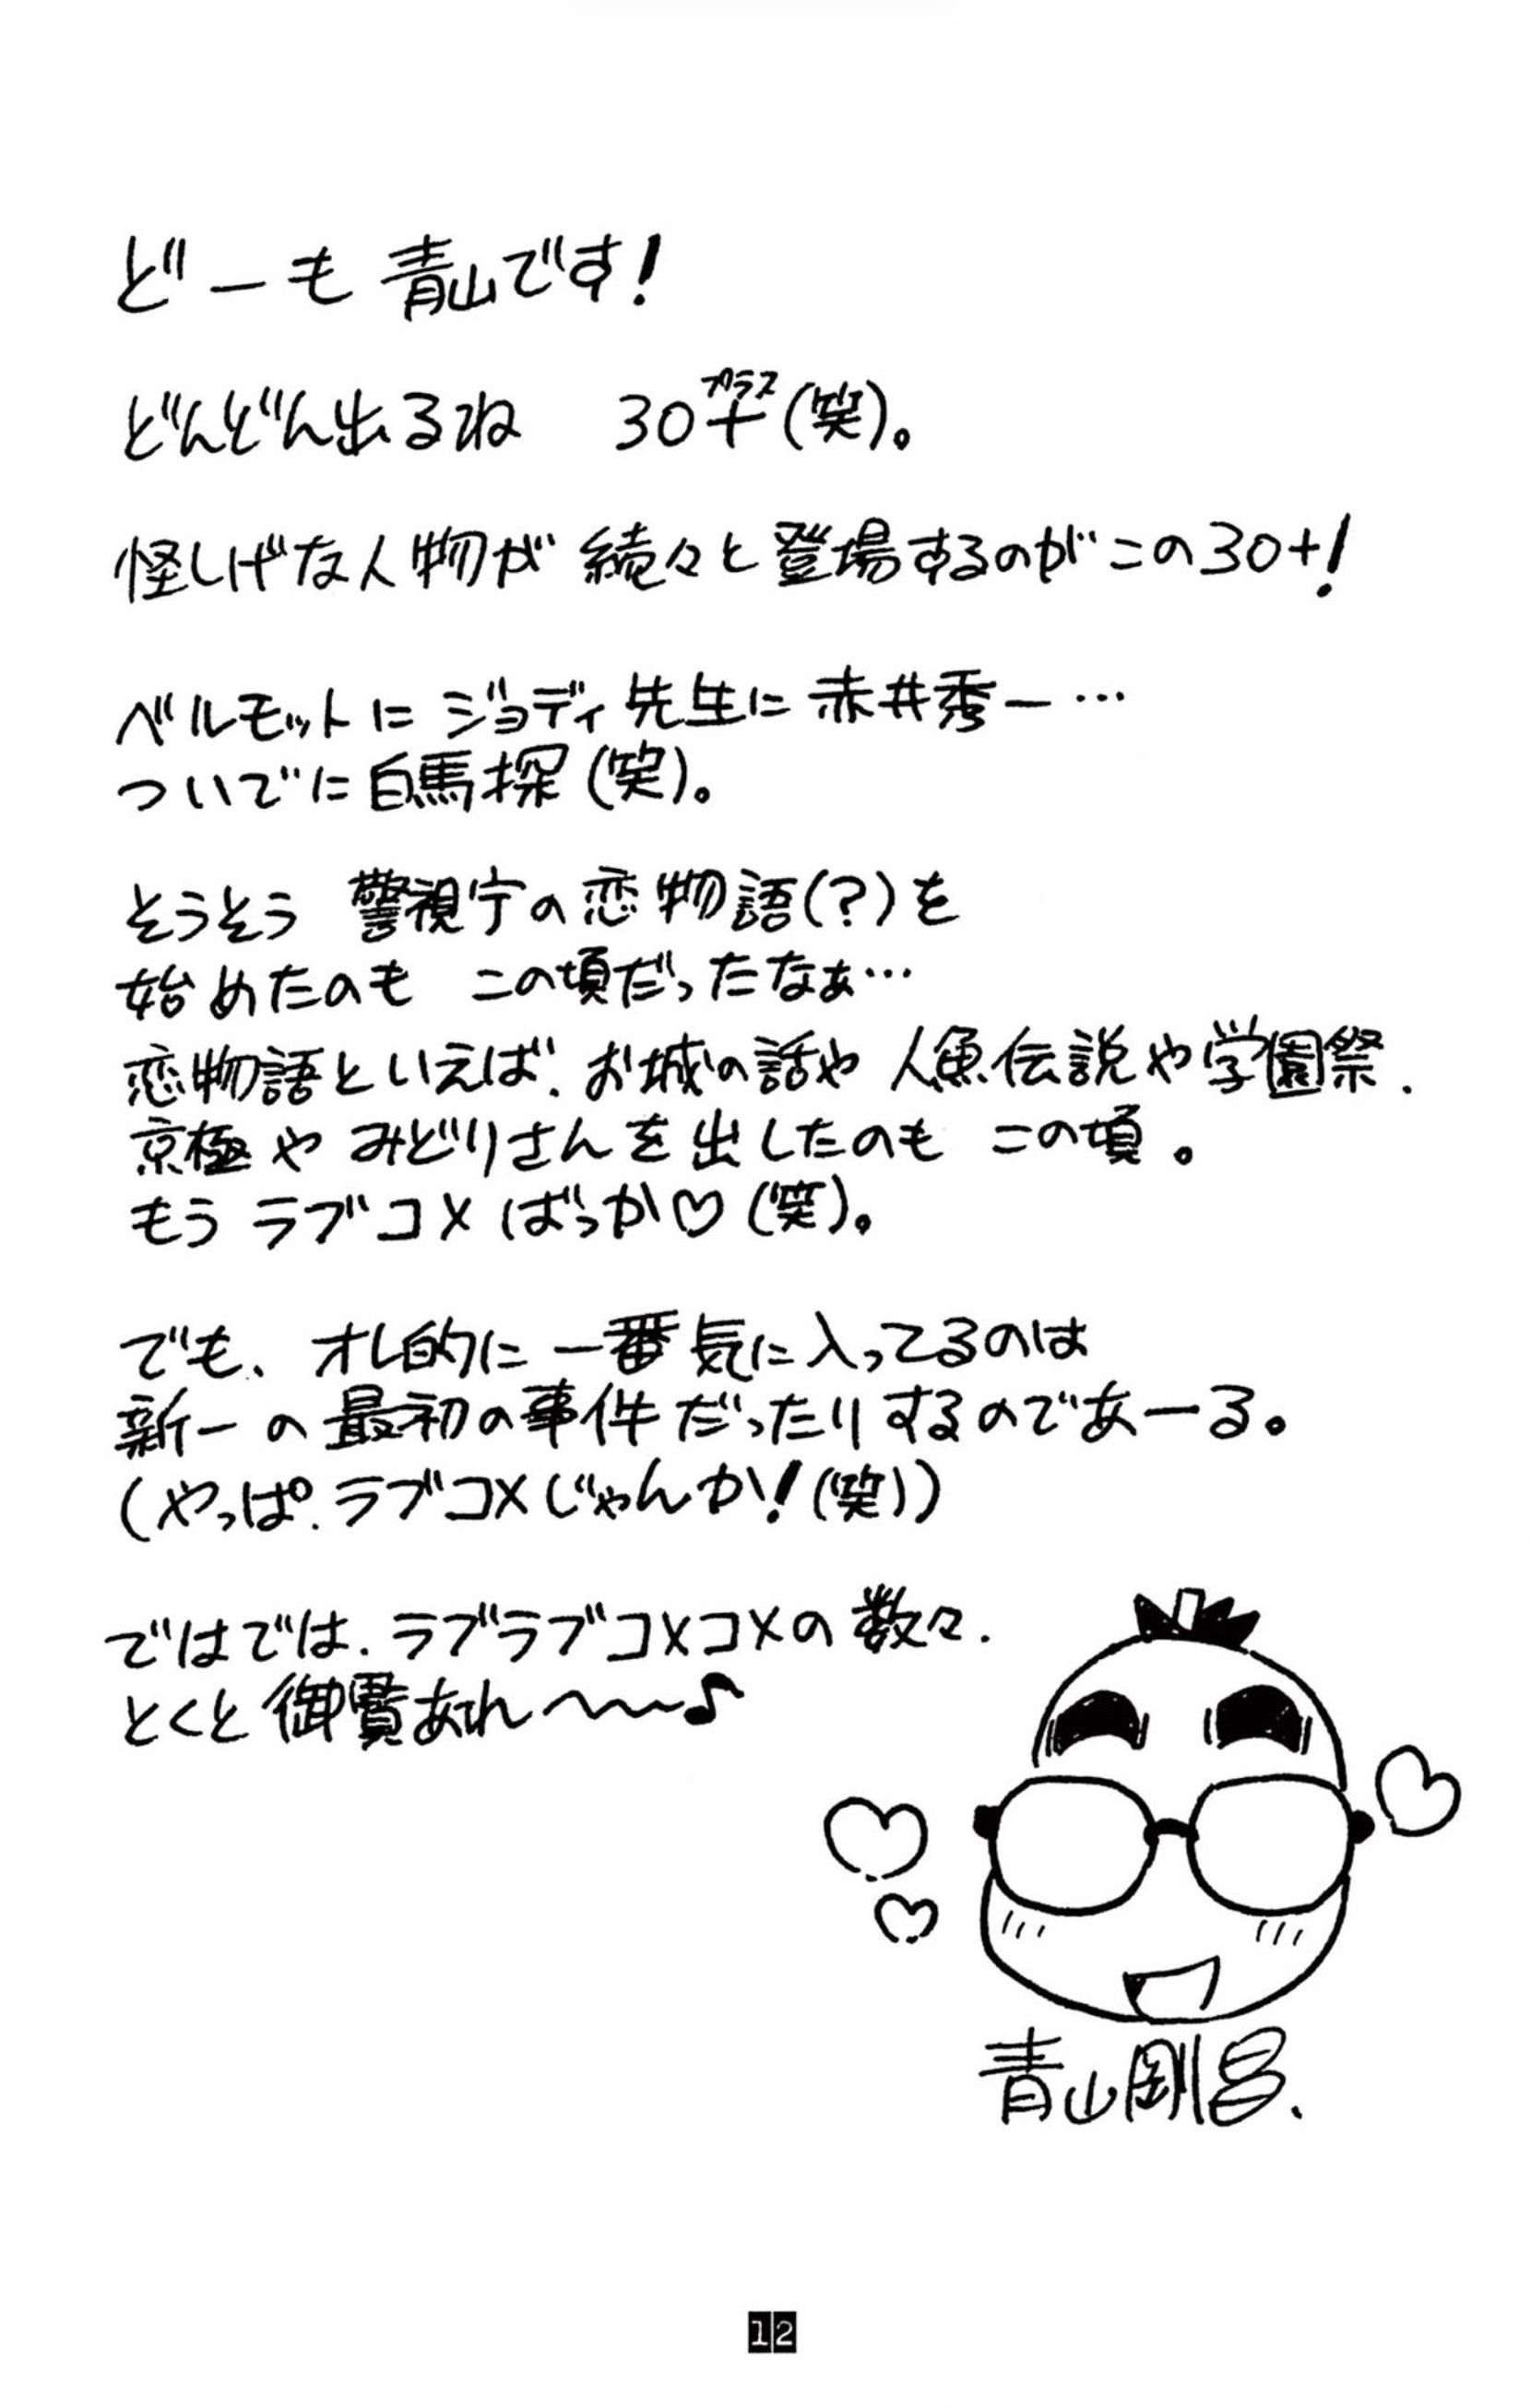 どーも 青山です!
どんどん出るね 30+(笑)。
プラス
怪しげな人物が 続々と登場するのがこの30+!
ベルモットに ジョディ先生に 赤井秀一…
ついでに白馬探(笑)。
そうそう 警視庁の恋物語(?)を
始めたのも この頃だったなぁ…
恋物語といえば、お城の話や 人魚伝説や学園祭、
京極や みどりさんを出したのも この頃。
もう ラブコメばっか♡(笑)。
でも、オレ的に一番気に入ってるのは
新一の最初の事件だったりするのであーる。
(やっぱ、ラブコメじゃんか!(笑))
ではでは、ラブラブコメコメの数々、
とくと御覧あれ〜〜♪
青山剛昌、
12